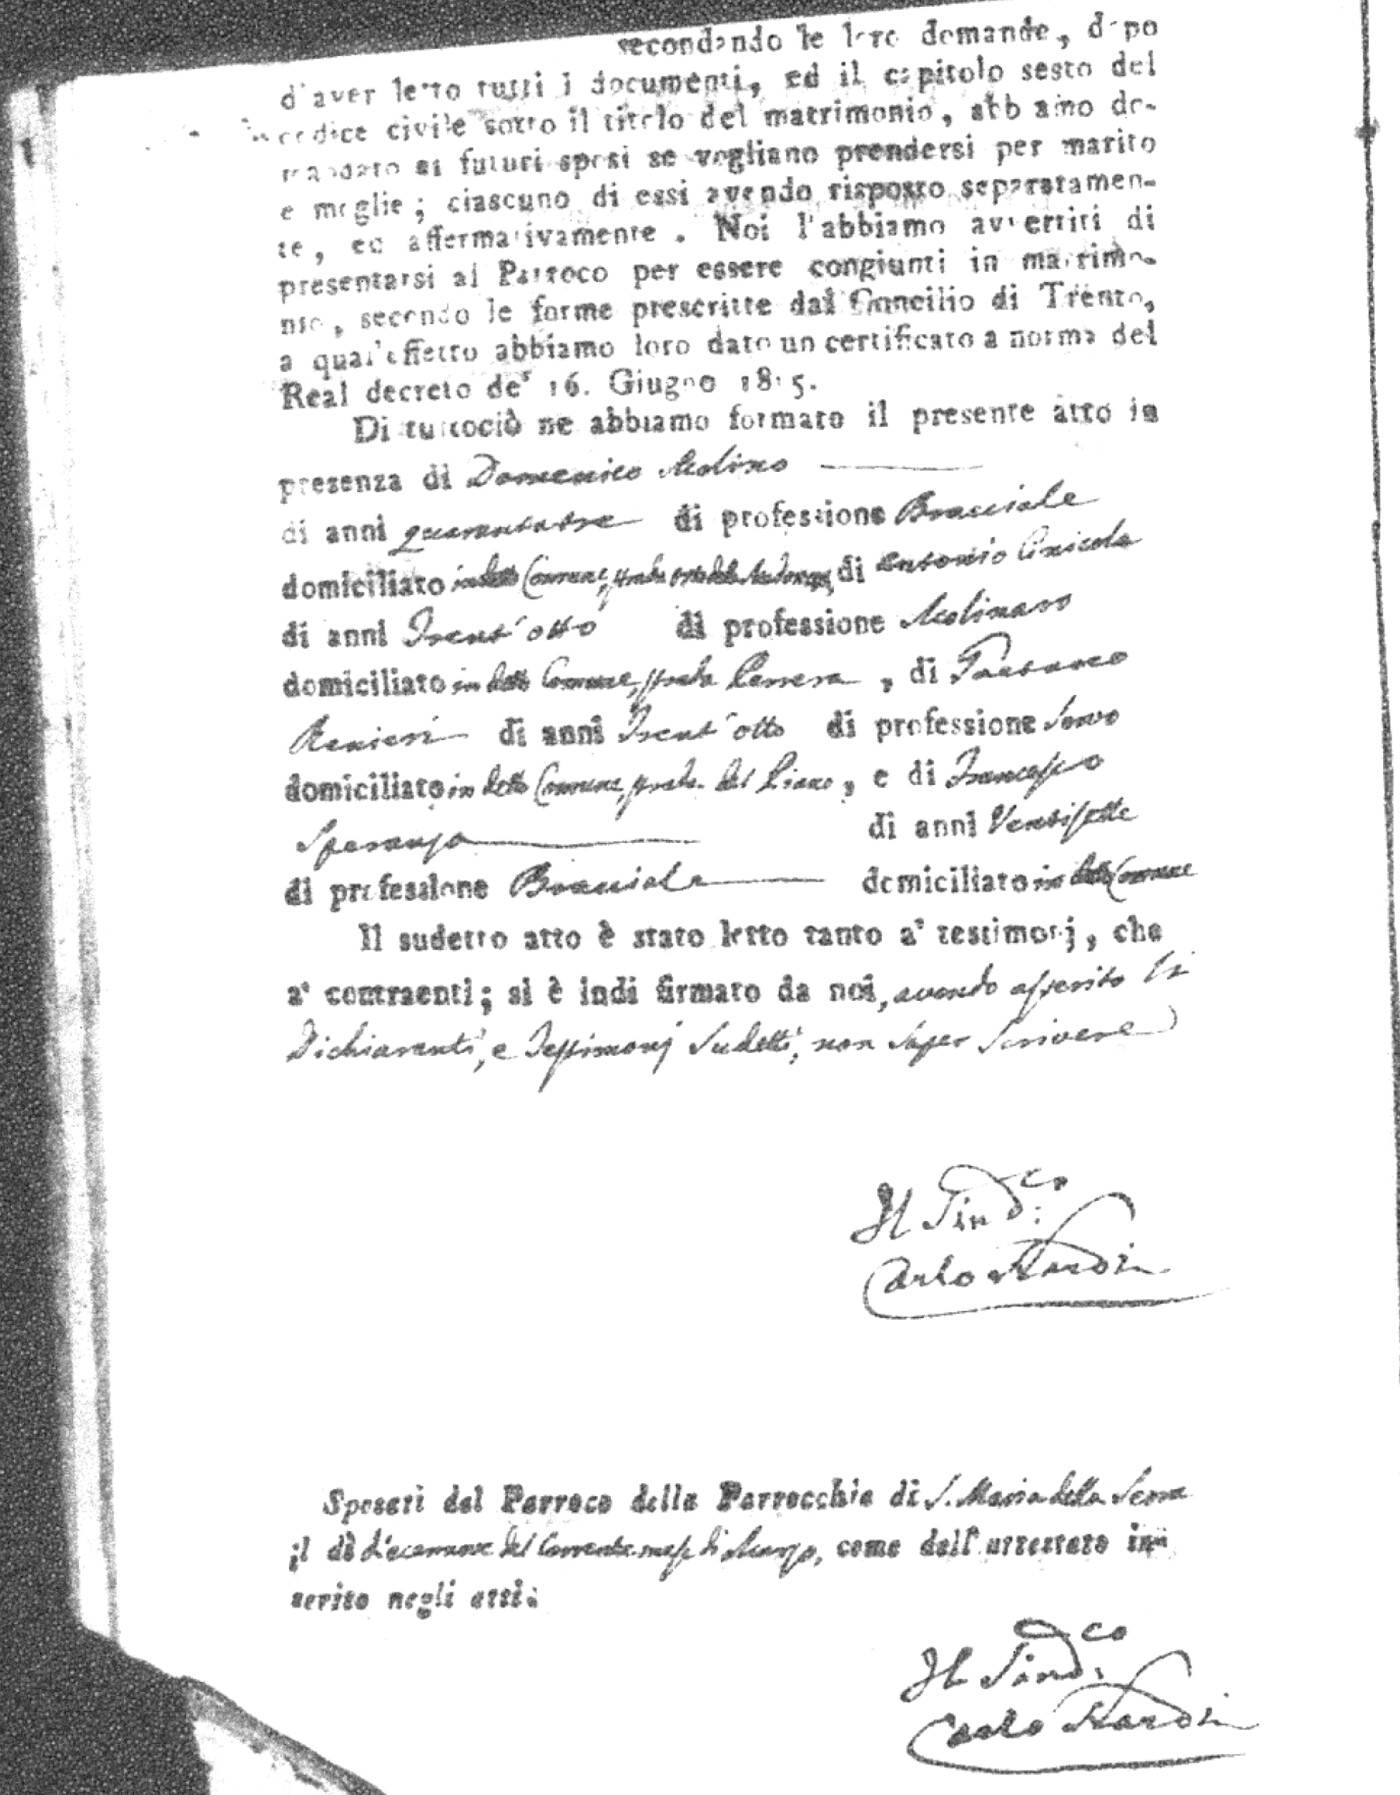 secondando le loro domande, dopo
d'aver letto tutti i documenti, ed il capitolo sesto del
codice civile sotto il titolo del matrimonio, abbiamo do-
mandato ai futuri sposi se vogliano prendersi per marito
e moglie; ciascuno di essi avendo risposto separatamen-
te, ed affermativamente. Noi l'abbiamo avvertiti di
presentarsi al Parroco per essere congiunti in matrimo-
nio, secondo le forme prescritte dal Concilio di Trento,
a qual'effetto abbiamo loro dato un certificato a norma del
Real decreto de' 16. Giugno 1815.
Di tuttociò ne abbiamo formato il presente atto in
presenza di Domenico Molino
di anni quarantatre di professione Bracciale
domiciliato in detto Comune, strada orto della di Antonio
di anni Trent'otto di professione Molinaro
domiciliato in detto Comune, strada , di
Renieri di anni Trent'otto di professione Servo
domiciliato in detto Comune, strada del Piano, e di Francesco
Speranza di anni Ventisette
di professione Bracciale domiciliato in detto Comune
Il sudetto atto è stato letto tanto a' testimonj, che
a' contraenti; si è indi firmato da noi, avendo asserito li
Dichiaranti, e Testimonj Sudetti, non saper Scrivere
Il Sind.co
Carlo Nardi
Sposati dal Parroco della Parrocchia di S. Maria della Serra
il dì diecenove del Corrente mese di Marzo, come dall'attestato in-
serito negli atti.
Il Sind.co
Carlo Nardi